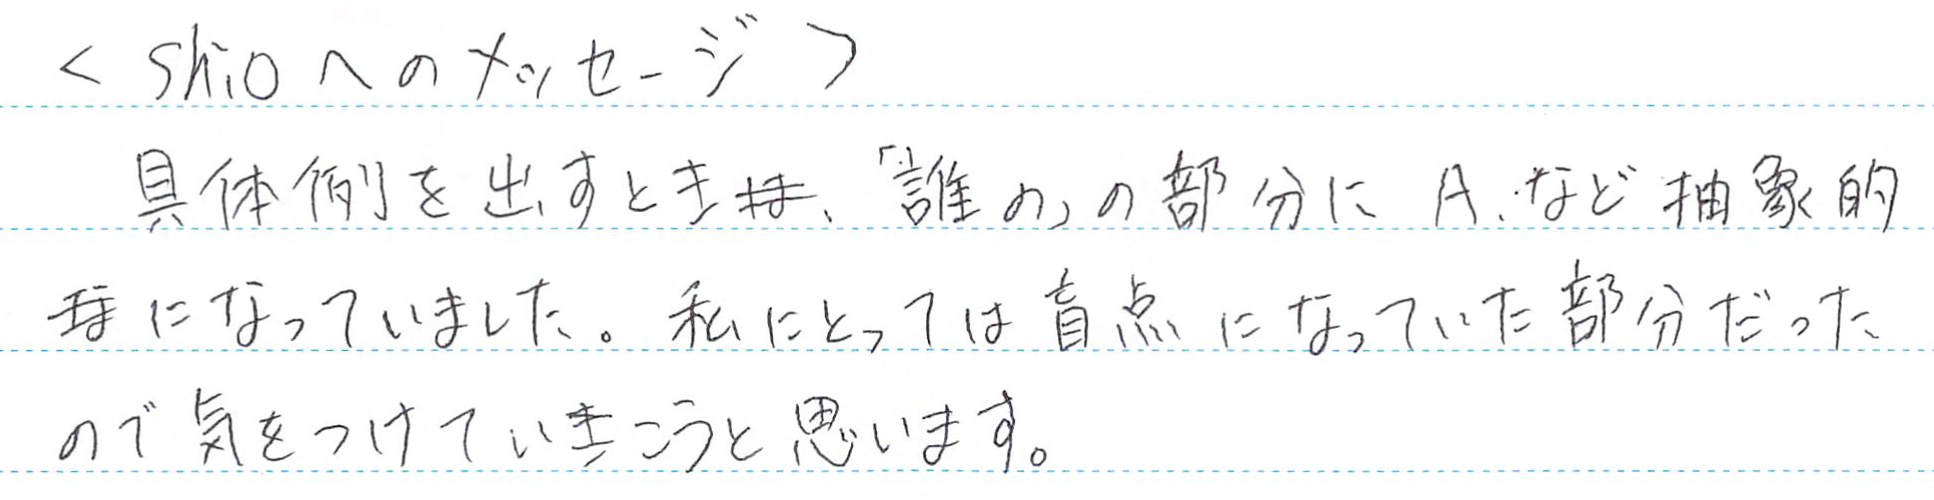 <shioへのメッセージ>
具体例を出すとき、「誰の」の部分にA.など抽象的
になっていました。私にとっては盲点になっていた部分だった
ので気をつけていこうと思います。